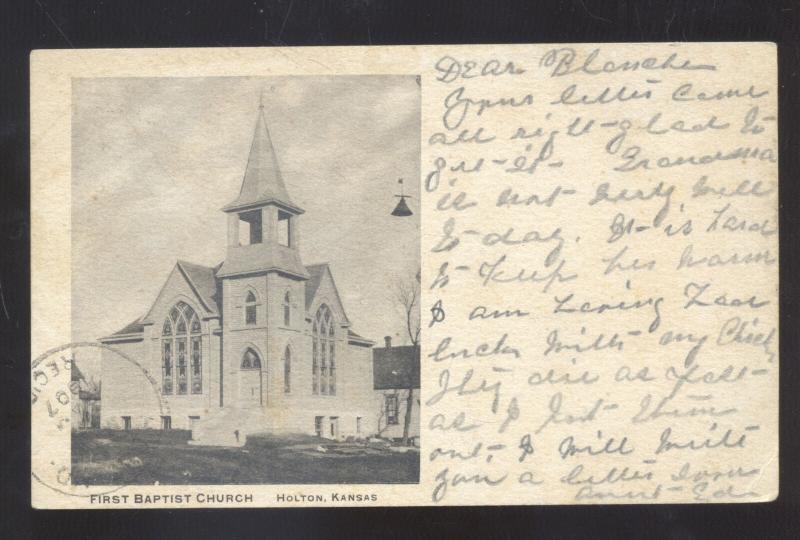 Dear Blanche
Your letter came
all right - glad to
get - it - Grandma
is not very well
to day. It - is hard
to keep her warm
I am having poor
luck with my Chicks
They die as fast -
as I put them
out. I will write
you a letter soon
Aunt Eda
REC'D
1907
FIRST BAPTIST CHURCH HOLTON, KANSAS